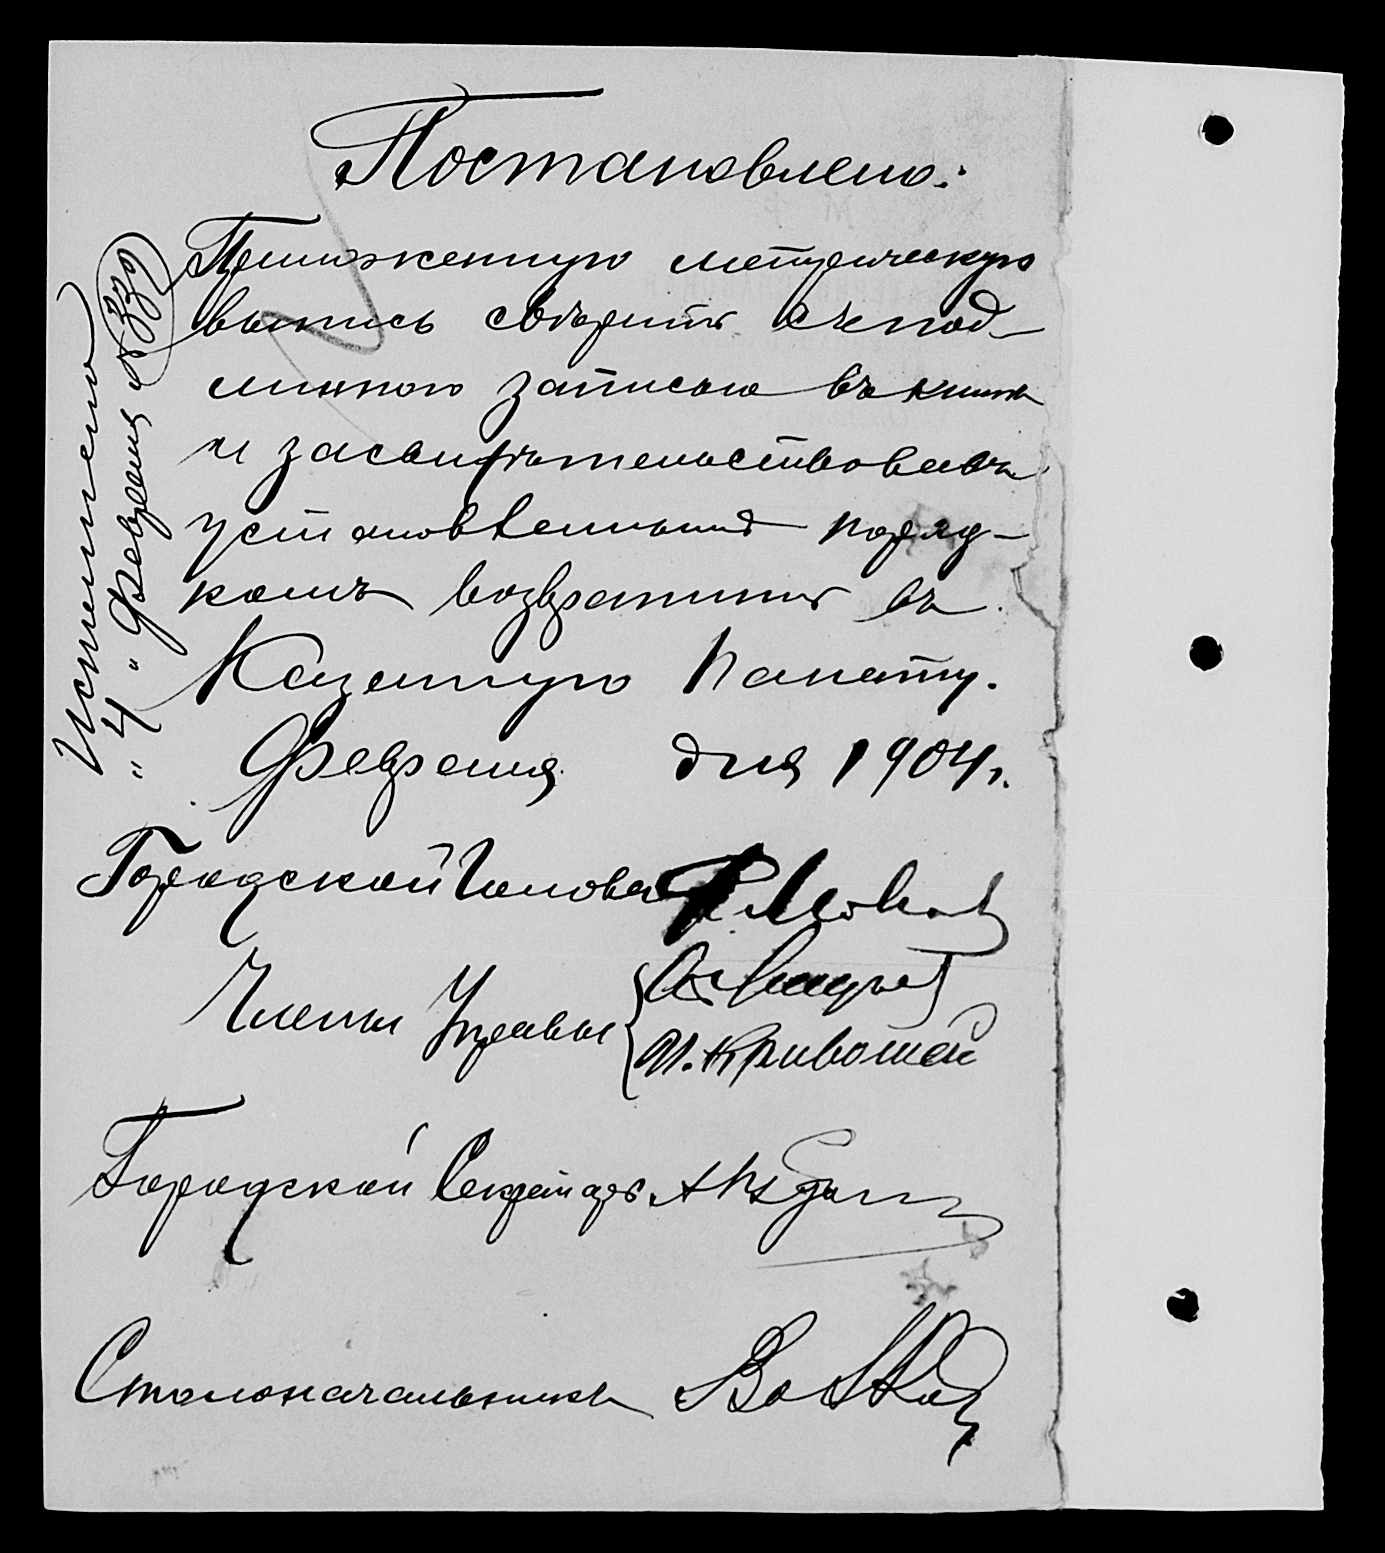 Постановлено:
Приложенную метрическую
выпись сверить съ под-
линною записью въ книгѣ
и засвидѣтельствовавъ
установленнымъ поряд-
комъ возвратить въ
Казенную Палату.
Февраля дня 1904 г.
Городской Голова
Члены Управы
И. Кривошей
Городской Секретарь
Столоначальникъ
Исполнено
"4" Февраля №